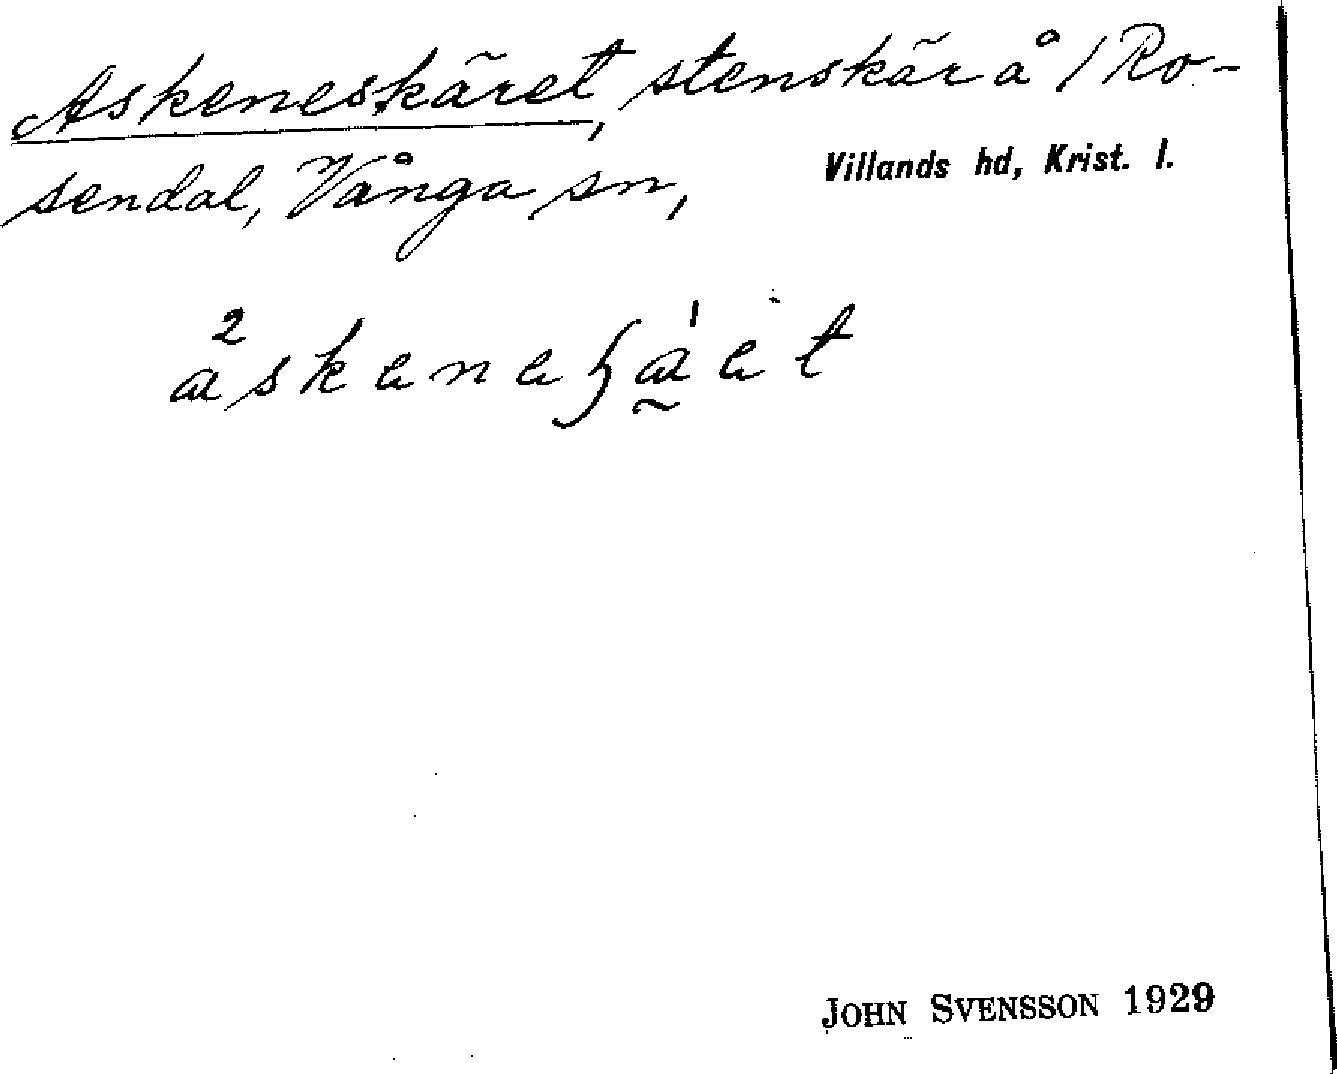 Askeneskäret, stenskär å 1 Ro-
sendal, Vånga sn,
Villands hd, Krist. l.
JOHN SVENSSON 1929